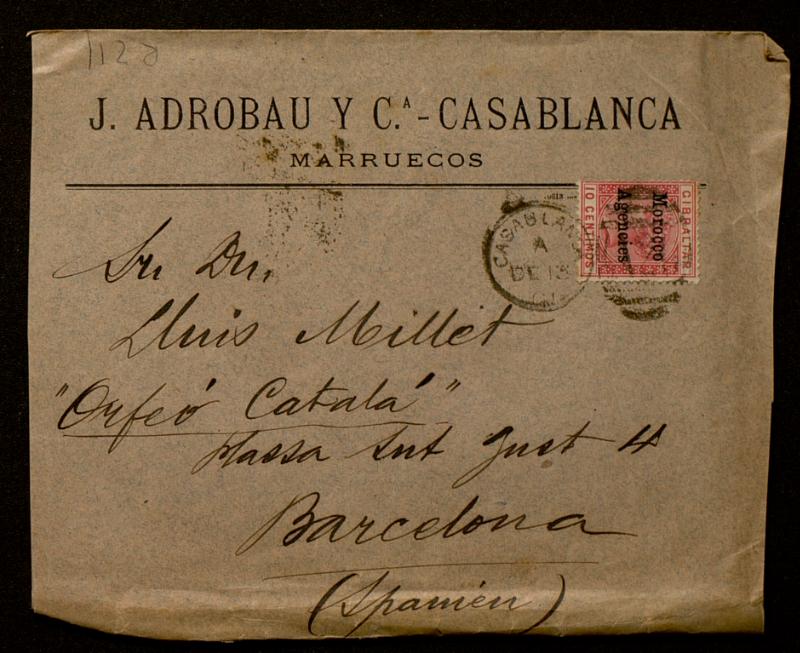 112
J. ADROBAU Y C.ª - CASABLANCA
MARRUECOS
GIBRALTAR
Morocco
Agencies
10 CENTIMOS
CASABLANCA
A
DE 13
Sr. Dn.
Lluis Millet
"Orfeó Catalá"
Plassa Snt Just 4
Barcelona
(Spanien)